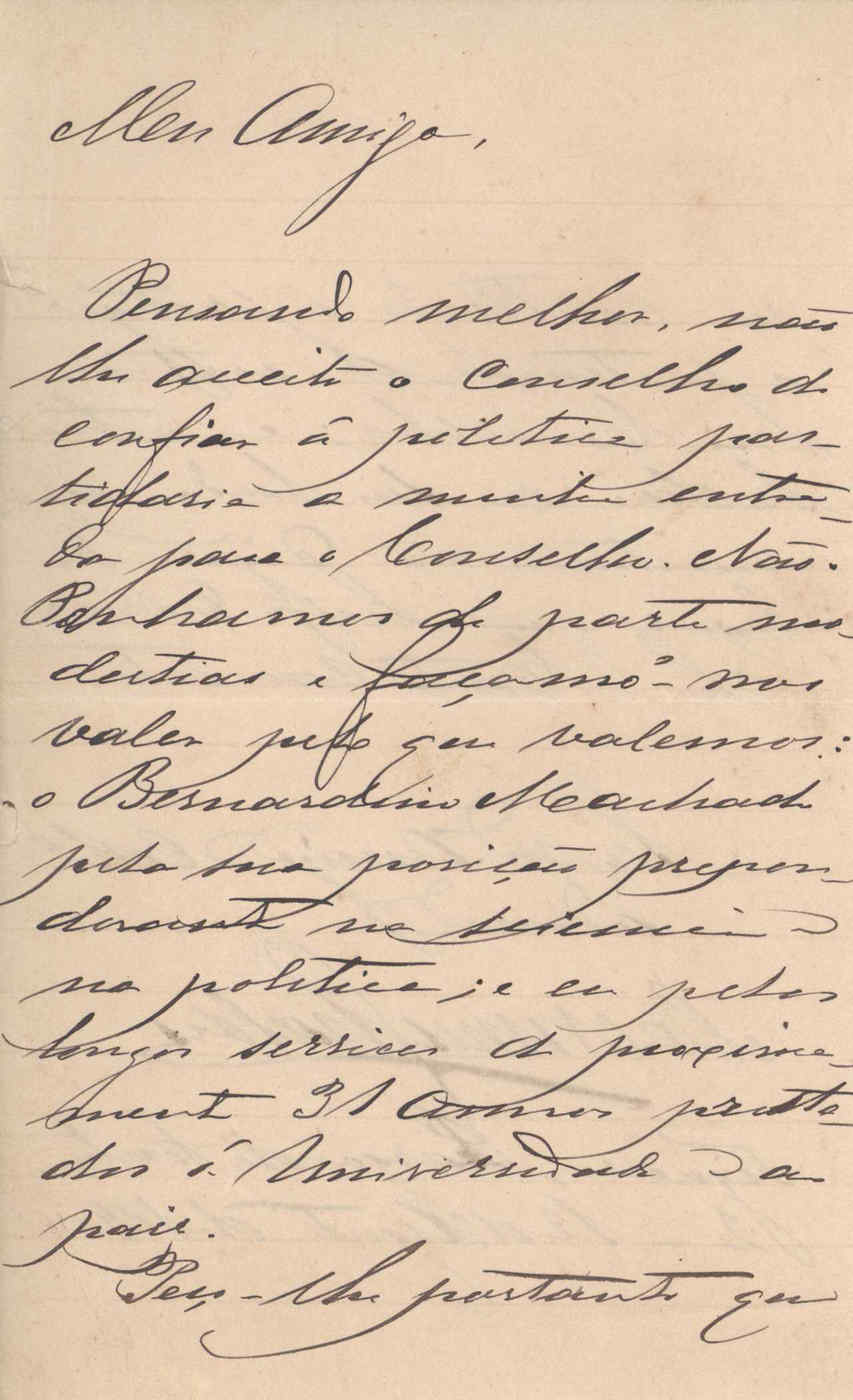 Meu Amigo,
Pensando melhor, não
lhe aceito o conselho de
confiar á politica par-
tidaria a minha entra-
da para o Conselho. Não.
Ponhamos de parte mo-
destias e façamo-nos
valer pelo que valemos:
o Bernardino Machado
pela sua posição prepon-
derante na sciencia e
na politica; e eu pelos
longos serviços de proxima-
mente 31 annos presta-
dos á Universidade e ao
paiz.
Peço-lhe portanto que